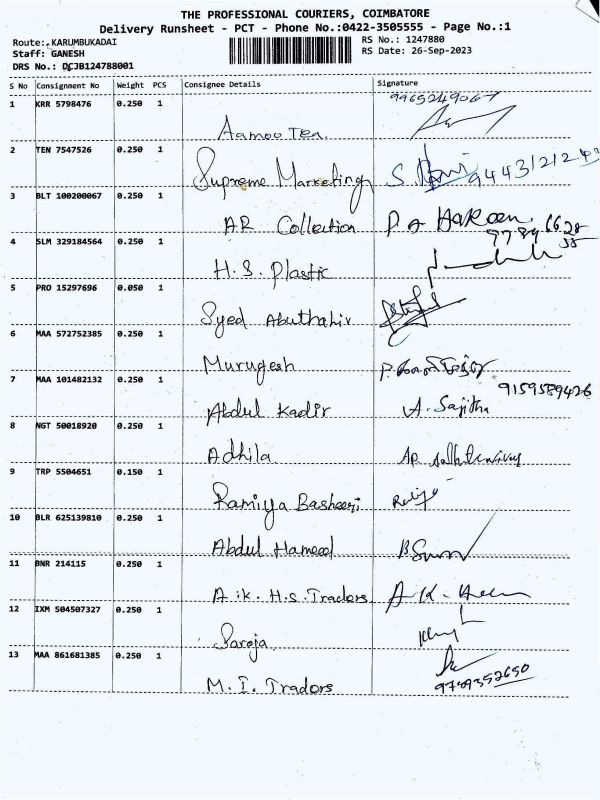 THE PROFESSIONAL COURIERS, COIMBATORE
Delivery Runsheet - PCT - Phone No.:0422-3505555 - Page No.:1
Route: KARUMBUKADAI
RS No.: 1247880
Staff: GANESH
RS Date: 26-Sep-2023
DRS No.: DCJB124788001
S No Consignment No Weight PCS Consignee Details Signature
1 KRR 5798476 0.250 1 Aamoo Tea. 9965249067
2 TEN 7547526 0.250 1 Supreme Marketing S.
3 BLT 100200067 0.250 1 AR Collection
4 SLM 329184564 0.250 1 H.S. Plastic
5 PRO 15297696 0.050 1 Syed Abuthahir
6 MAA 572752385 0.250 1 Murugesh
7 MAA 101482132 0.250 1 Abdul Kadir A. Sajitha 9159589426
8 NGT 50018920 0.250 1 Adhila
9 TRP 5504651 0.150 1 Ramiya Basheeri
10 BLR 625139810 0.250 1 Abdul Hameed
11 BNR 214115 0.250 1 A.K.H.S. Traders
12 IXM 504507327 0.250 1 Saroja
13 MAA 861681385 0.250 1 M.I. Tradors 9789352650